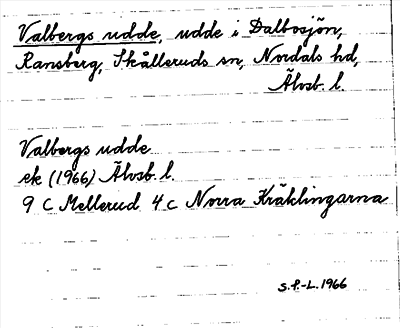 Valbergs udde, udde i Dalbosjön,
Ransberg, Skålleruds sn, Nordals hd,
Älvsb. l.
Valbergs udde
ek (1966) Älvsb. l.
9 C Mellerud 4 c Norra Kräklingarna
S.P-L. 1966